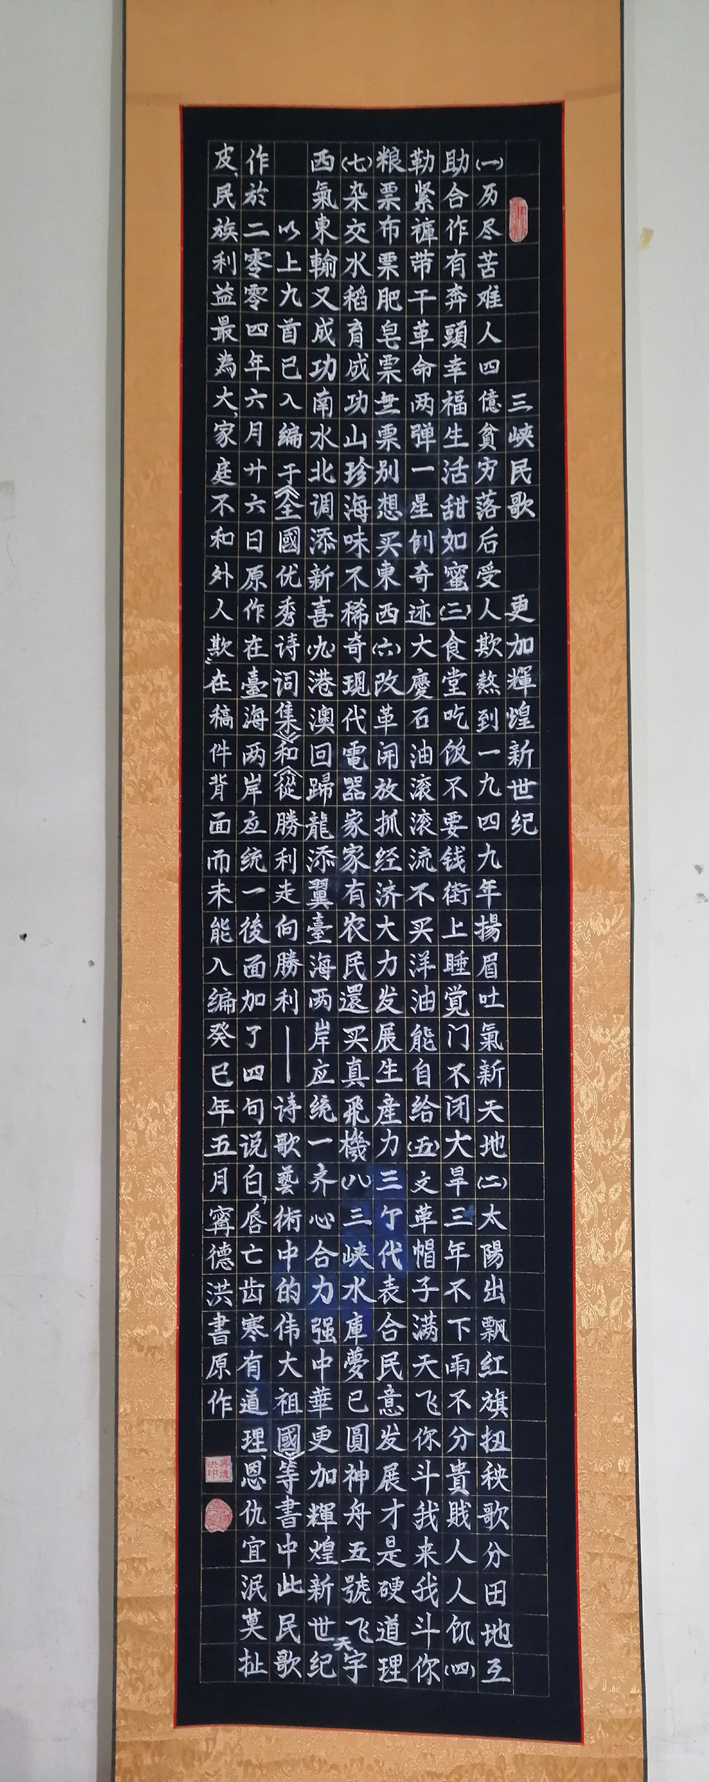 三峡民歌 更加輝煌新世纪
(一)历尽苦难人四億貧穷落后受人欺熬到一九四九年揚眉吐氣新天地(二)太陽出飘红旗扭秧歌分田地互
助合作有奔頭幸福生活甜如蜜(三)食堂吃饭不要钱街上睡觉门不闭大旱三年不下雨不分貴賎人人饥(四)
勒紧褲带干革命两弹一星创奇迹大慶石油滚滚流不买洋油能自给(五)文革帽子满天飞你斗我来我斗你
粮票布票肥皂票無票别想买東西(六)改革開放抓经济大力发展生産力三个代表合民意发展才是硬道理
(七)杂交水稻育成功山珍海味不稀奇現代電器家家有农民還买真飛機(八)三峡水庫夢已圓神舟五號飞天宇
西氣東輸又成功南水北调添新喜(九)港澳回歸龍添翼臺海两岸应统一齐心合力强中華更加輝煌新世纪
以上九首已入编于《全國优秀诗词集》和《從勝利走向勝利——诗歌藝術中的伟大祖國》等書中此民歌
作於二零零四年六月廿六日原作在臺海两岸应统一後面加了四句说白,唇亡齿寒有道理恩仇宜泯莫扯
皮、民族利益最為大、家庭不和外人欺、在稿件背面而未能入编癸巳年五月寗德洪書原作